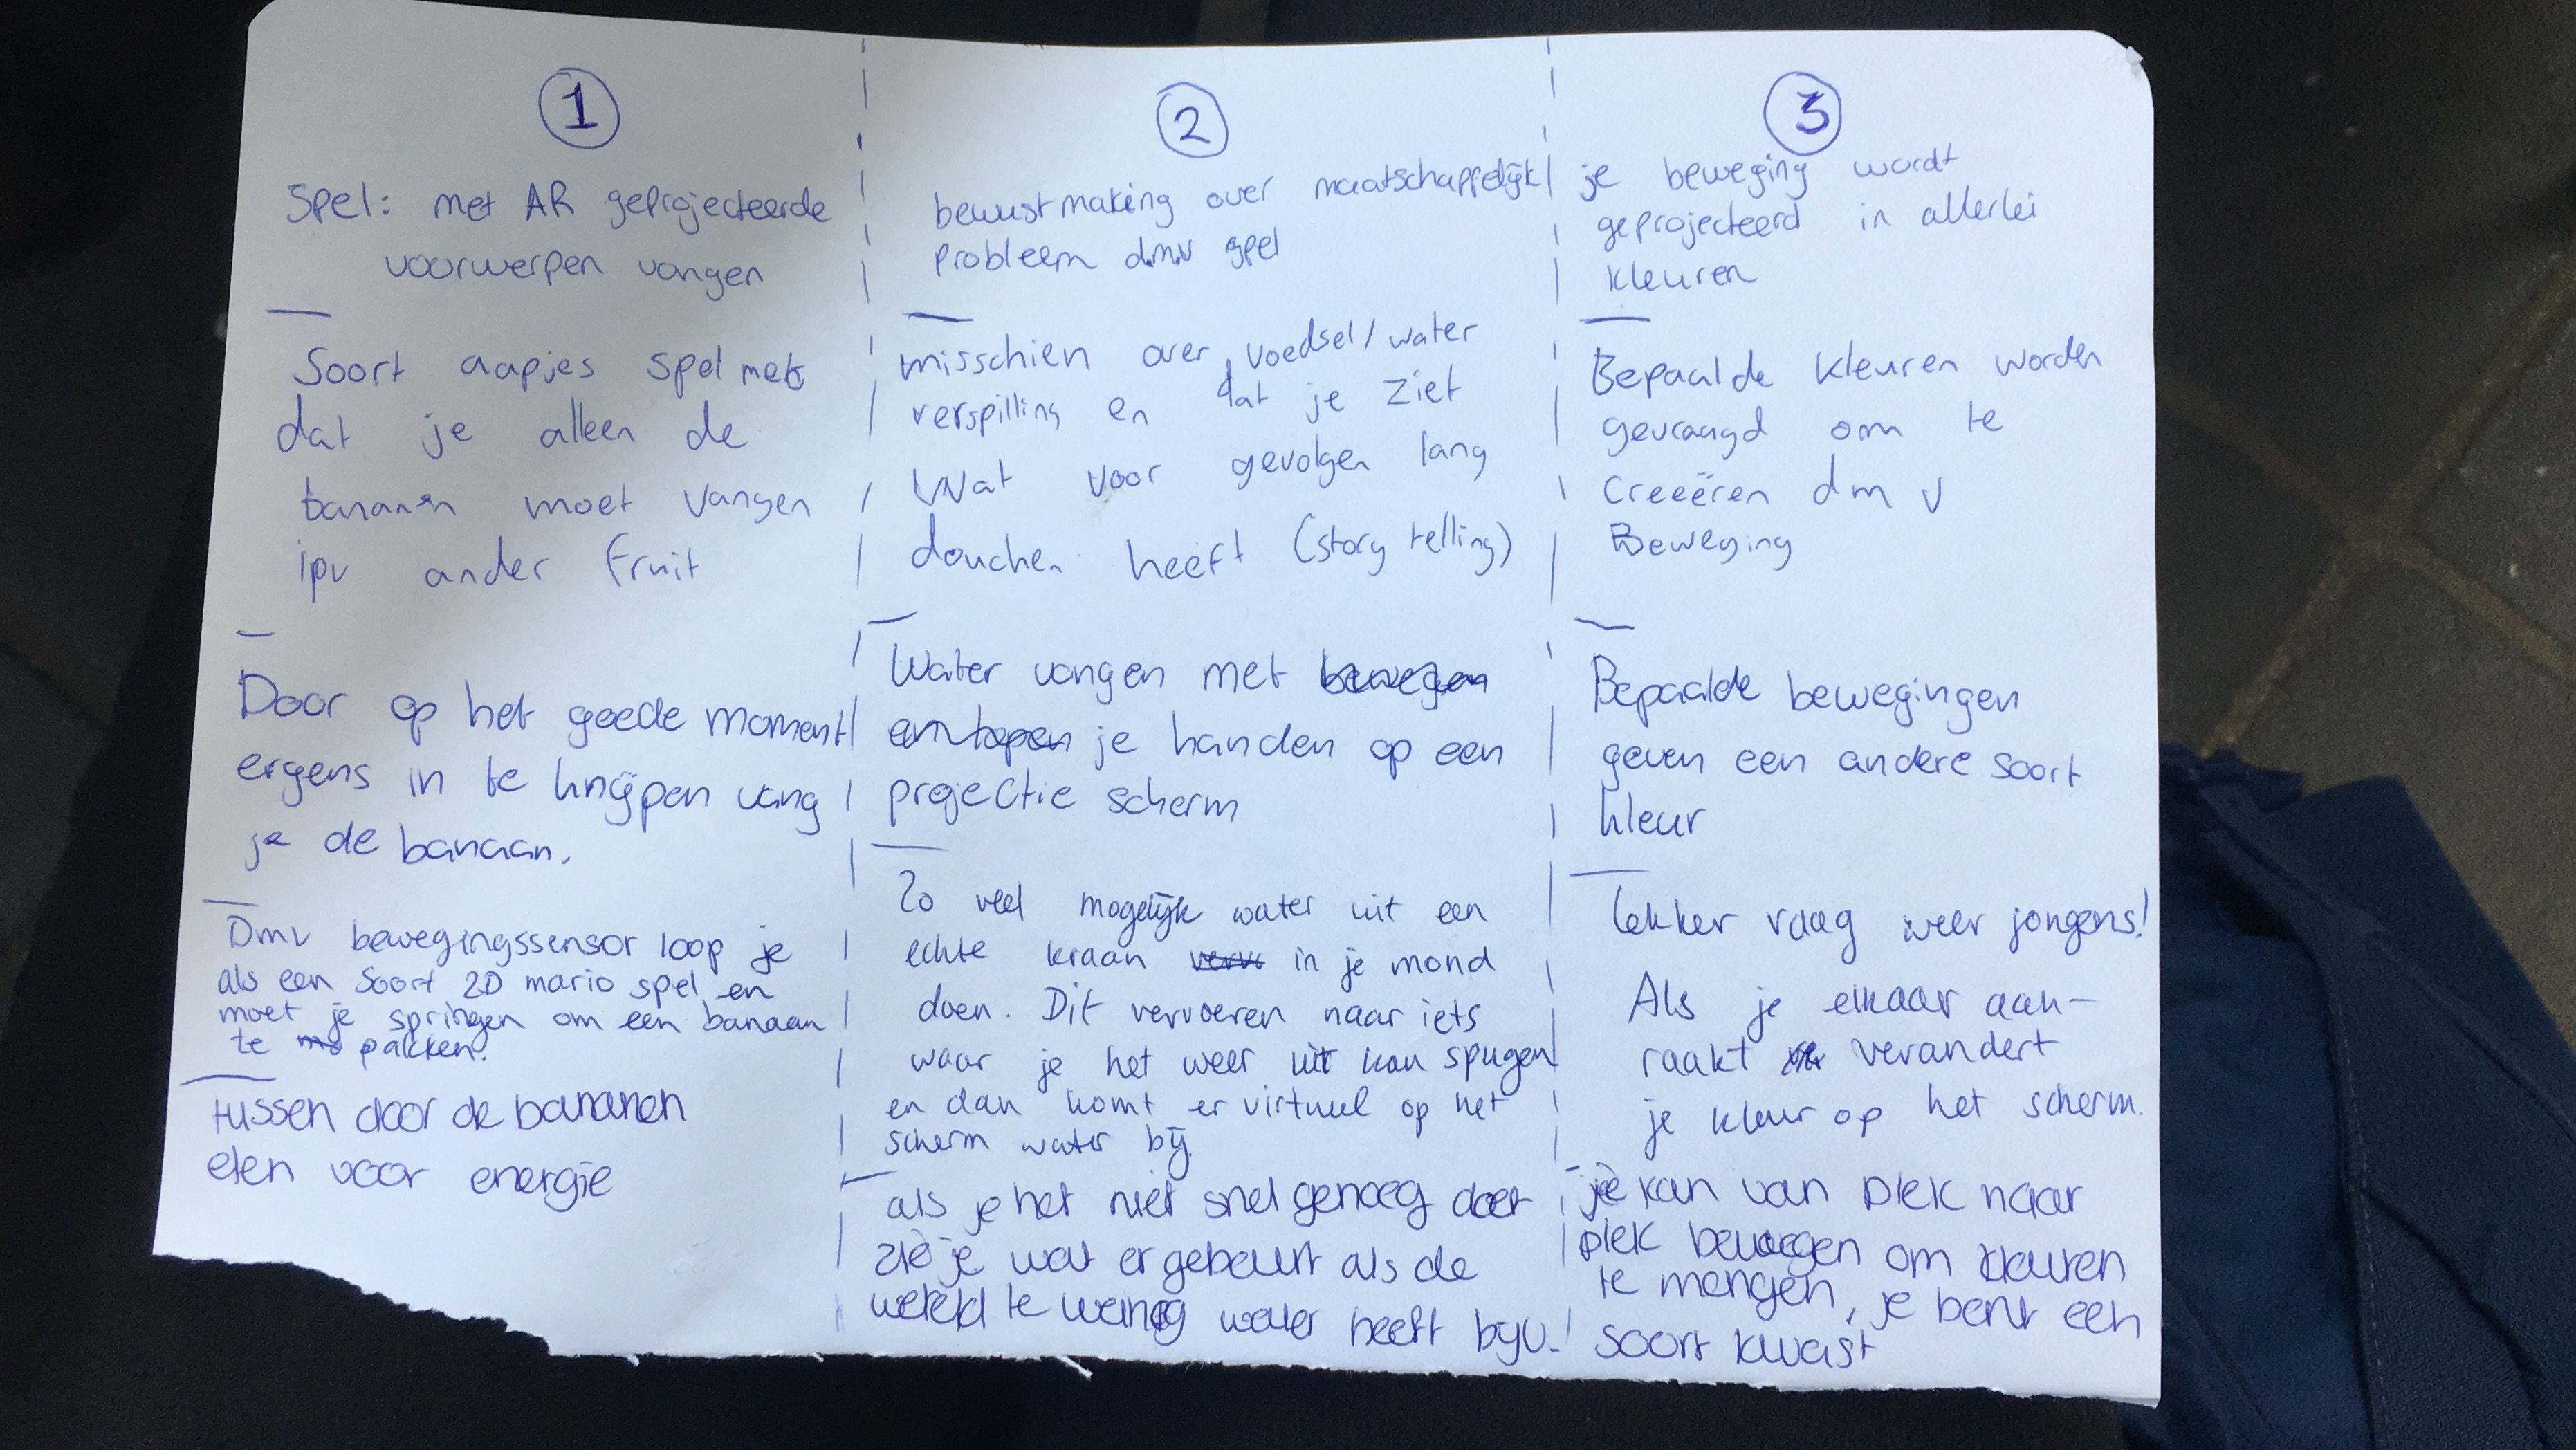 1
Spel: met AR geprojecteerde
voorwerpen vangen
Soort aapjes spel met
dat je alleen de
bananen moet vangen
ipv ander fruit
Door op het goede moment
ergens in te knijpen vang
je de banaan.
Dmv bewegingssensor loop je
als een soort 2D mario spel en
moet je springen om een banaan
te pakken!
tussen door de bananen
eten voor energie
2
bewustmaking over maatschappelijk
probleem dmv spel
misschien over voedsel/water
verspilling en dat je ziet
wat voor gevolgen lang
douchen heeft (story telling)
Water vangen met bewegen
en je handen op een
projectie scherm
Zo veel mogelijk water uit een
echte kraan in je mond
doen. Dit vervoeren naar iets
waar je het weer uit kan spugen
en dan komt er virtueel op het
scherm water bij
als je het niet snel genoeg doet
zie je wat er gebeurt als de
wereld te weinig water heeft bijv.
3
je beweging wordt
geprojecteerd in allerlei
kleuren
Bepaalde kleuren worden
gevraagd om te
creëren dmv
Beweging
Bepaalde bewegingen
geven een andere soort
kleur
lekker vaag weer jongens!
Als je elkaar aan-
raakt verandert
je kleur op het scherm.
je kan van plek naar
plek bewegen om kleuren
te mengen, je bent een
soort kwast